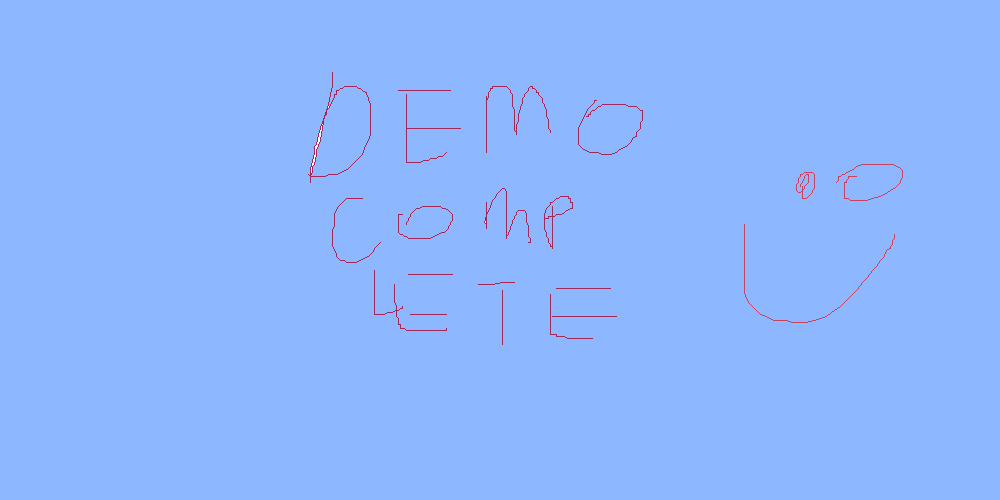 DEMO
COMP
LETE